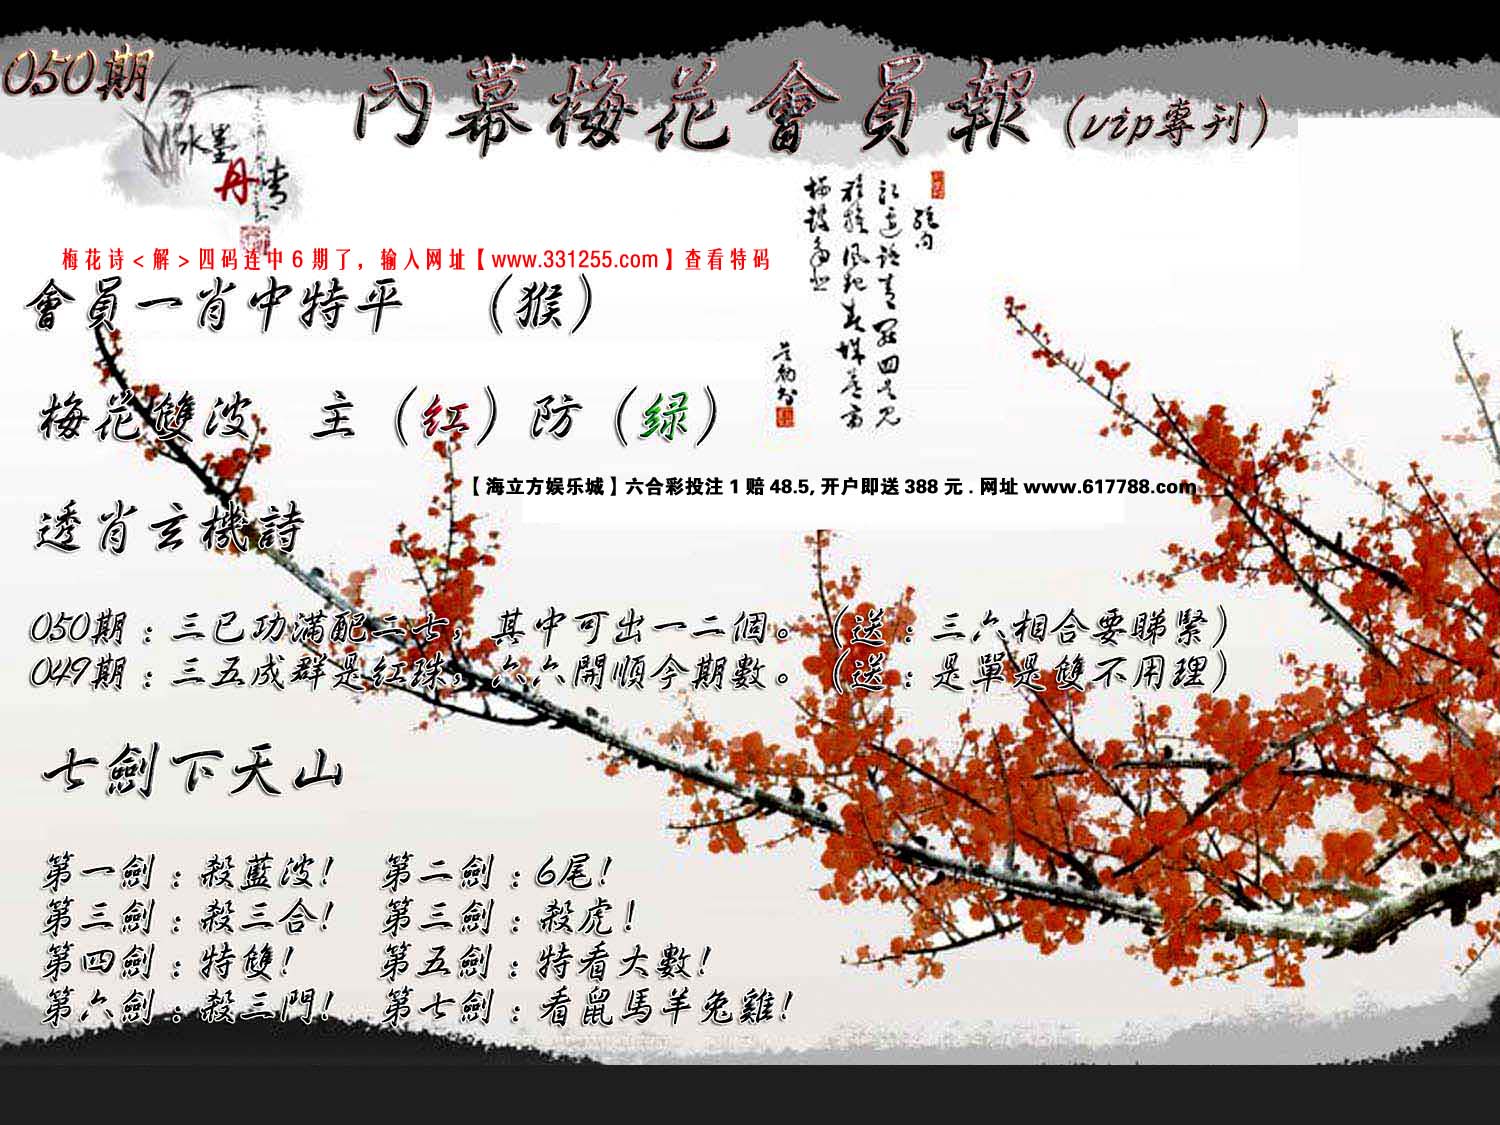 050期
內幕梅花會員報(vip專刊)
水墨
丹青
梅花诗<解>四码连中6期了，输入网址【www.331255.com】查看特码
會員一肖中特平 （猴）
梅花雙波 主（红）防（绿）
【海立方娱乐城】六合彩投注1赔48.5,开户即送388元.网址www.617788.com
透肖玄機詩
050期：三已功滿配二七，其中可出一二個。（送：三六相合要睇緊）
049期：三五成群是红珠，六六開順今期數。（送：是單是雙不用理）
七劍下天山
第一劍：殺藍波! 第二劍：6尾!
第三劍：殺三合! 第三劍：殺虎!
第四劍：特雙! 第五劍：特看大數!
第六劍：殺三門! 第七劍：看鼠馬羊兔雞!